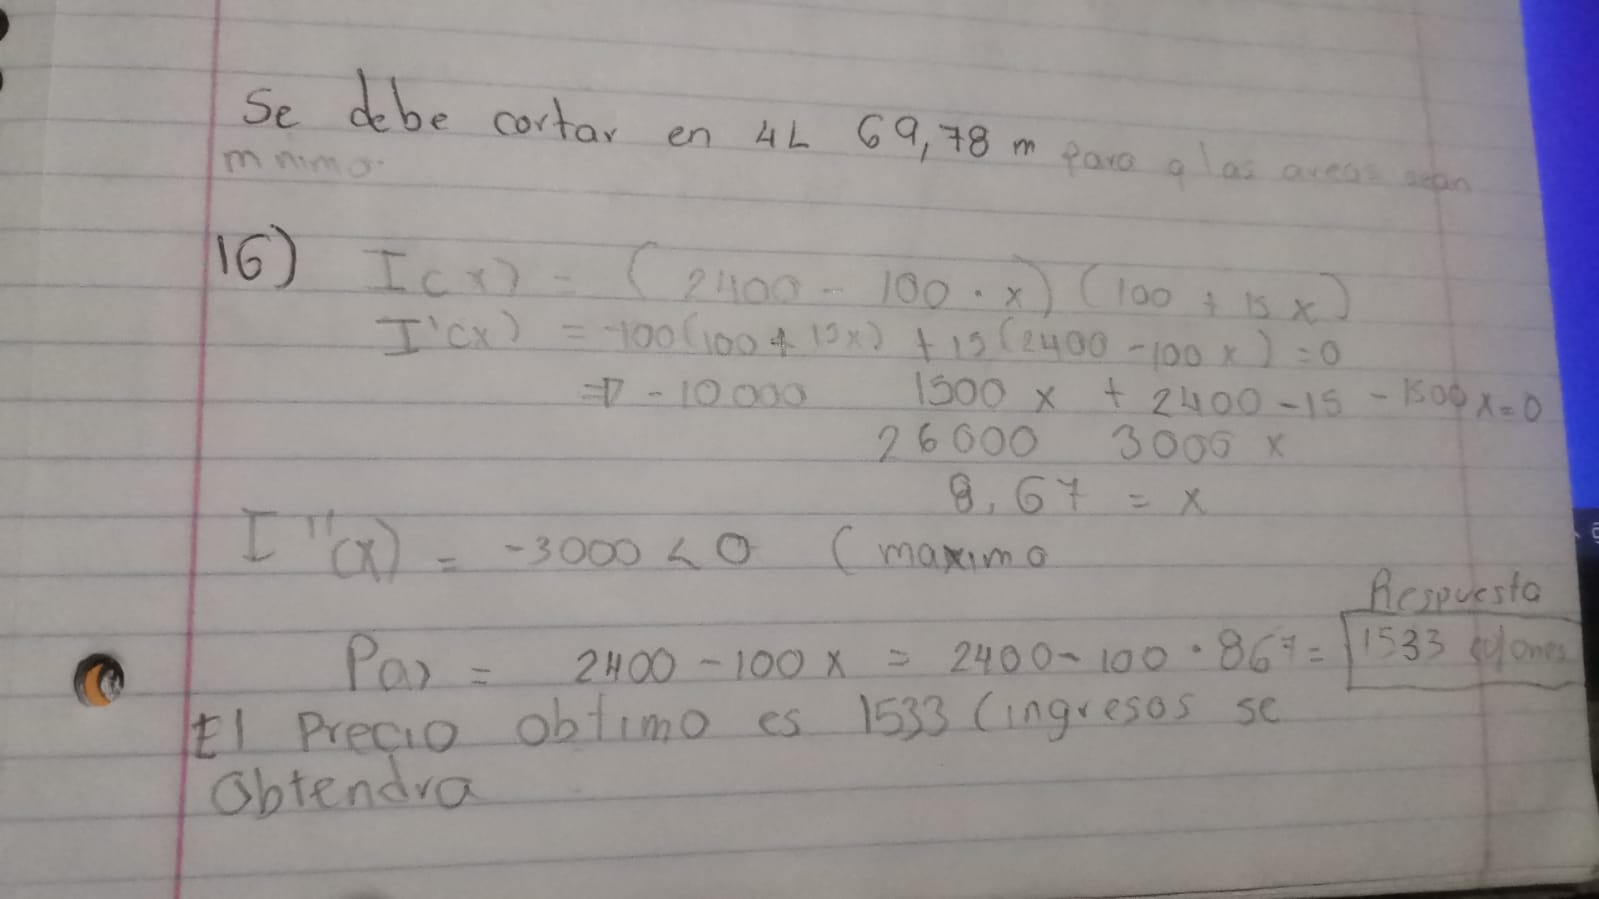 Se debe cortar en 4L 69,78 m para q las areas sean
mnimo.
16) I(x) = (2400 - 100 · x) (100 + 15 x)
I'(x) = -100(100 + 15x) + 15(2400 - 100 x) = 0
⇒ - 10 000 1500 x + 2400 - 15 - 1500 x = 0
26000 3000 x
8,67 = x
I''(x) = -3000 < 0 (maximo
Respuesta
P(x) = 2400 - 100 x = 2400 - 100 · 867 = 1533 colones
El Precio obtimo es 1533 (ingresos se
Obtendra